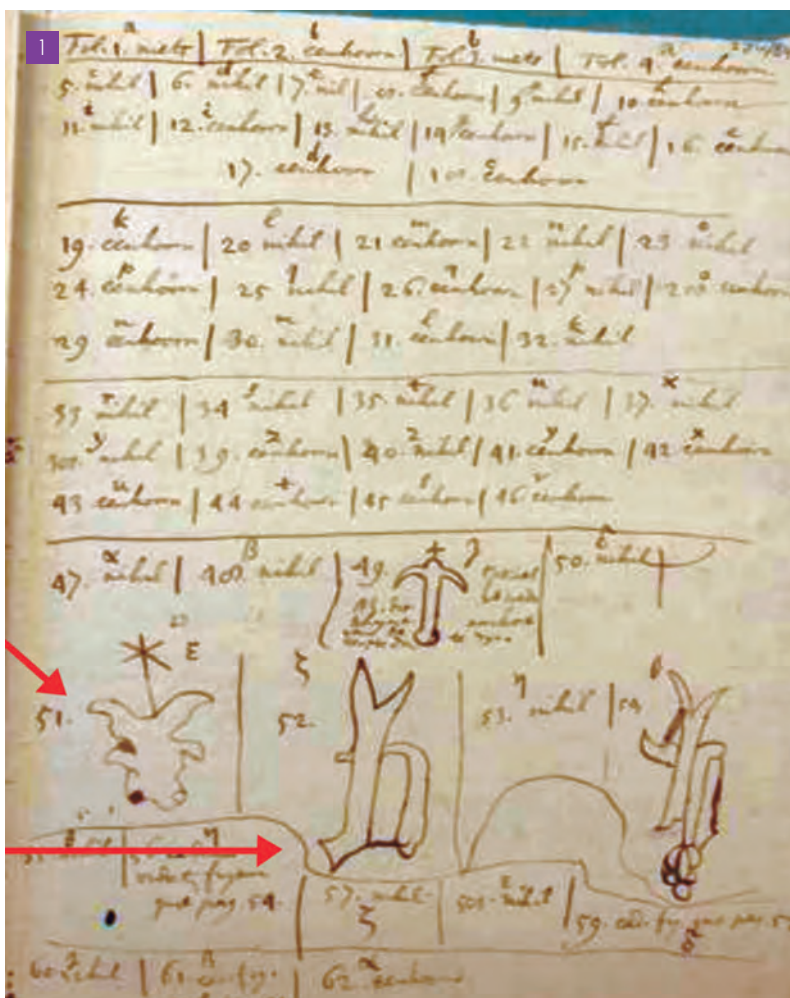 1
Fol. 1. a | Fol. 2. b eenhoorn | Fol. 3. b | Fol. 4. a eenhoorn
5. c nihil | 6. d nihil | 7. e nil | 8. f eenhoorn | 9. g nihil | 10. h eenhoorn
11. i nihil | 12. i eenhoorn | 13. h nihil | 14. g eenhoorn | 15. f nihil | 16. e eenhoorn
17. d eenhoorn | 18. c eenhoorn
19. k eenhoorn | 20 l nihil | 21 m eenhoorn | 22 n nihil | 23 o nihil
24. p eenhoorn | 25 q nihil | 26. q eenhoorn | 27 p nihil | 28 o eenhoorn
29 n eenhoorn | 30. m nihil | 31. l eenhoorn | 32. k nihil
33 r nihil | 34 s nihil | 35. t nihil | 36 u nihil | 37. x nihil
38. y nihil | 39. z eenhoorn | 40. z nihil | 41. y eenhoorn | 42 x eenhoorn
43 u eenhoorn | 44 t eenhoorn | 45 s eenhoorn | 46 r eenhoorn
47. α nihil | 48. β nihil | 49. γ | 50. δ nihil
51. ε | ζ 52. | 53. η nihil | 54. θ
pag. 54. | 57. nihil ζ | 58. ε nihil | 59. pag. δ
60. γ nihil | 61. β | 62. α eenhoorn